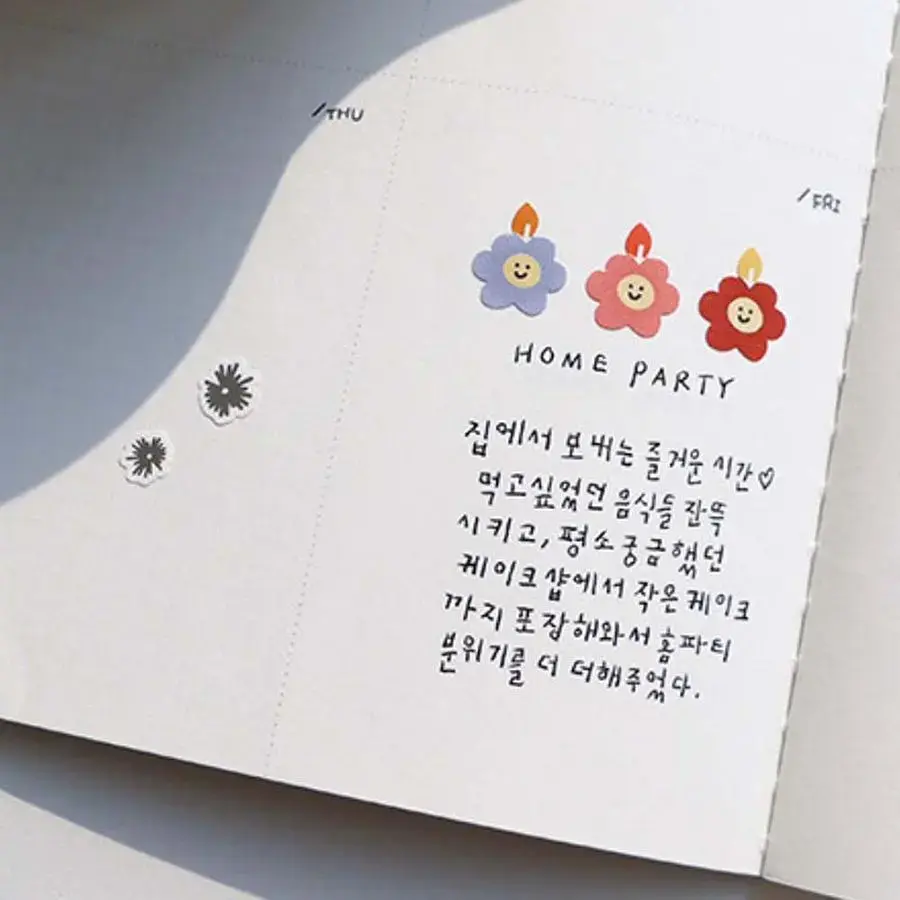 /THU
/FRI
HOME PARTY
집에서 보내는 즐거운 시간♡
먹고싶었던 음식들 잔뜩
시키고, 평소 궁금했던
케이크샵에서 작은 케이크
까지 포장해와서 홈파티
분위기를 더 더해주었다.